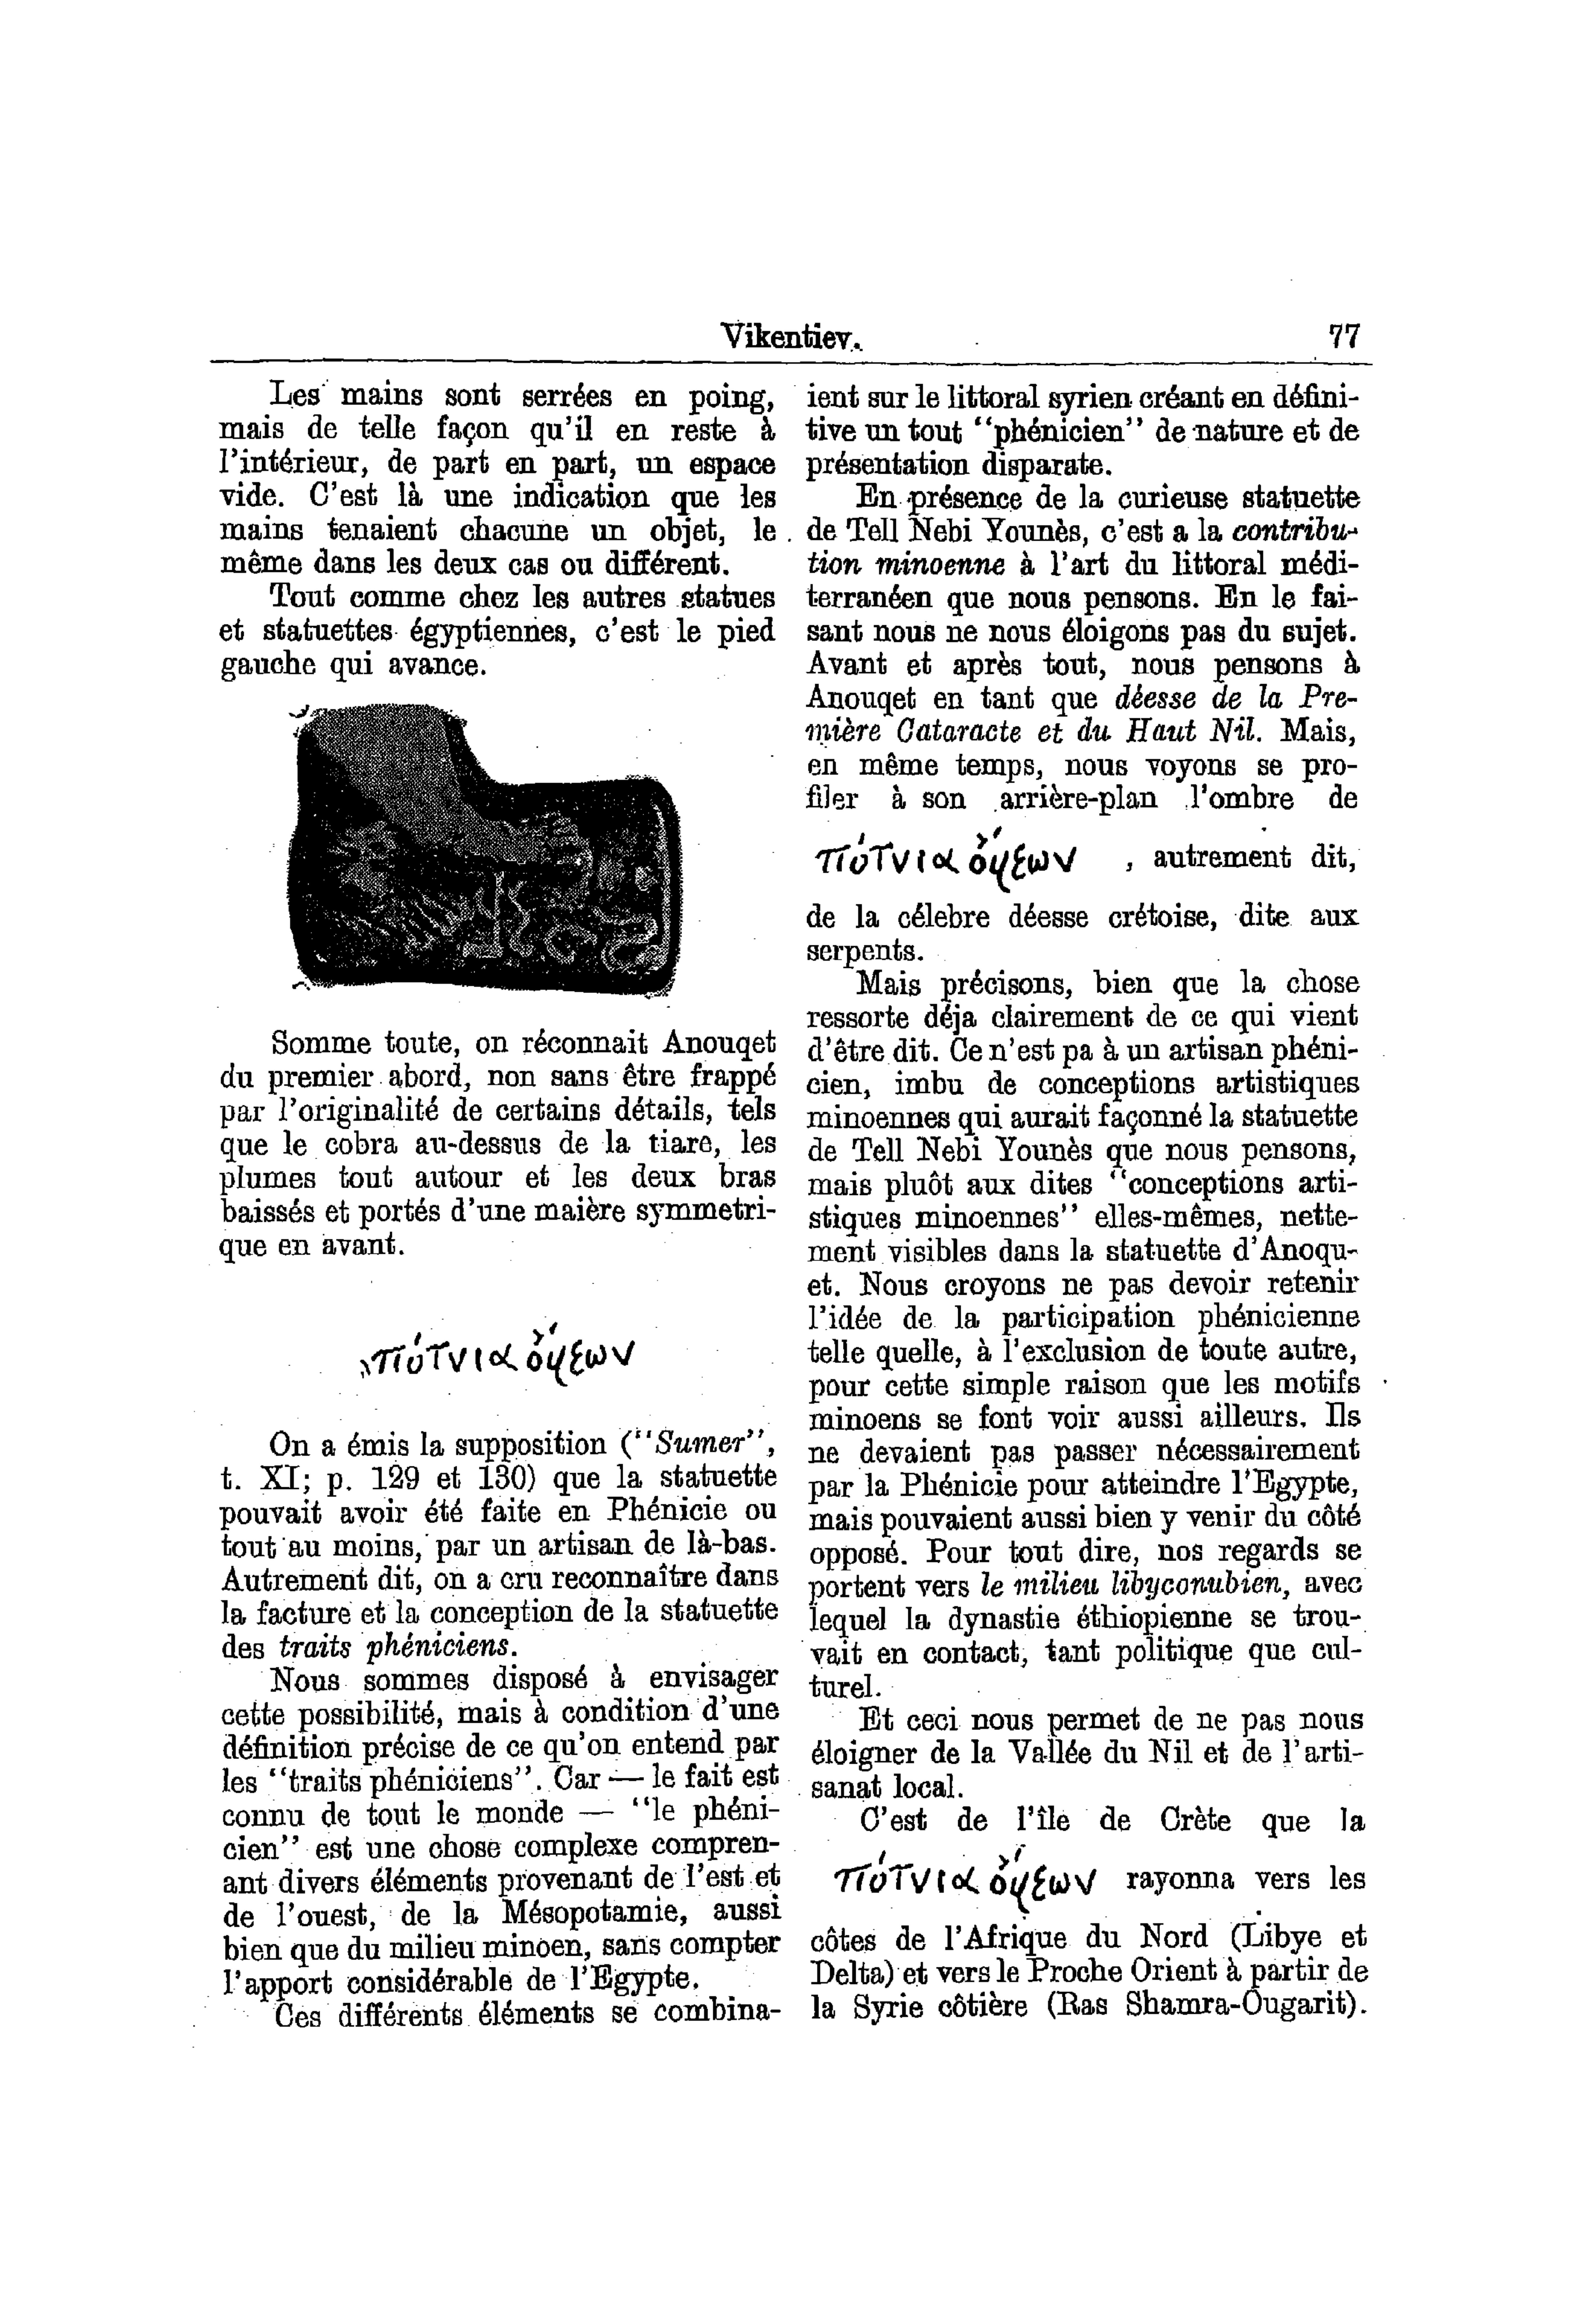 Vikentiev. 77
Les mains sont serrées en poing,
mais de telle façon qu'il en reste à
l'intérieur, de part en part, un espace
vide. C'est là une indication que les
mains tenaient chacune un objet, le
même dans les deux cas ou différent.
Tout comme chez les autres statues
et statuettes égyptiennes, c'est le pied
gauche qui avance.
Somme toute, on réconnait Anouqet
du premier abord, non sans être frappé
par l'originalité de certains détails, tels
que le cobra au-dessus de la tiare, les
plumes tout autour et les deux bras
baissés et portés d'une maière symmetri-
que en avant.
πότνια ὄψεων
On a émis la supposition (“Sumer”,
t. XI; p. 129 et 130) que la statuette
pouvait avoir été faite en Phénicie ou
tout au moins, par un artisan de là-bas.
Autrement dit, on a cru reconnaître dans
la facture et la conception de la statuette
des traits phéniciens.
Nous sommes disposé à envisager
cette possibilité, mais à condition d'une
définition précise de ce qu'on entend par
les “traits phéniciens”. Car — le fait est
connu de tout le monde — “le phéni-
cien” est une chose complexe compren-
ant divers éléments provenant de l'est et
de l'ouest, de la Mésopotamie, aussi
bien que du milieu minoen, sans compter
l'apport considérable de l'Egypte.
Ces différents éléments se combina-
ient sur le littoral syrien créant en défini-
tive un tout “phénicien” de nature et de
présentation disparate.
En présence de la curieuse statuette
de Tell Nebi Younès, c'est a la contribu-
tion minoenne à l'art du littoral médi-
terranéen que nous pensons. En le fai-
sant nous ne nous éloigons pas du sujet.
Avant et après tout, nous pensons à
Anouqet en tant que déesse de la Pre-
mière Cataracte et du Haut Nil. Mais,
en même temps, nous voyons se pro-
filer à son arrière-plan l'ombre de
πότνια ὄψεων , autrement dit,
de la célebre déesse crétoise, dite aux
serpents.
Mais précisons, bien que la chose
ressorte déja clairement de ce qui vient
d'être dit. Ce n'est pa à un artisan phéni-
cien, imbu de conceptions artistiques
minoennes qui aurait façonné la statuette
de Tell Nebi Younès que nous pensons,
mais pluôt aux dites “conceptions arti-
stiques minoennes” elles-mêmes, nette-
ment visibles dans la statuette d'Anoqu-
et. Nous croyons ne pas devoir retenir
l'idée de la participation phénicienne
telle quelle, à l'exclusion de toute autre,
pour cette simple raison que les motifs
minoens se font voir aussi ailleurs. Ils
ne devaient pas passer nécessairement
par la Phénicie pour atteindre l'Egypte,
mais pouvaient aussi bien y venir du côté
opposé. Pour tout dire, nos regards se
portent vers le milieu libyconubien, avec
lequel la dynastie éthiopienne se trou-
vait en contact, tant politique que cul-
turel.
Et ceci nous permet de ne pas nous
éloigner de la Vallée du Nil et de l'arti-
sanat local.
C'est de l'île de Crète que la
πότνια ὄψεων rayonna vers les
côtes de l'Afrique du Nord (Libye et
Delta) et vers le Proche Orient à partir de
la Syrie côtière (Ras Shamra-Ougarit).